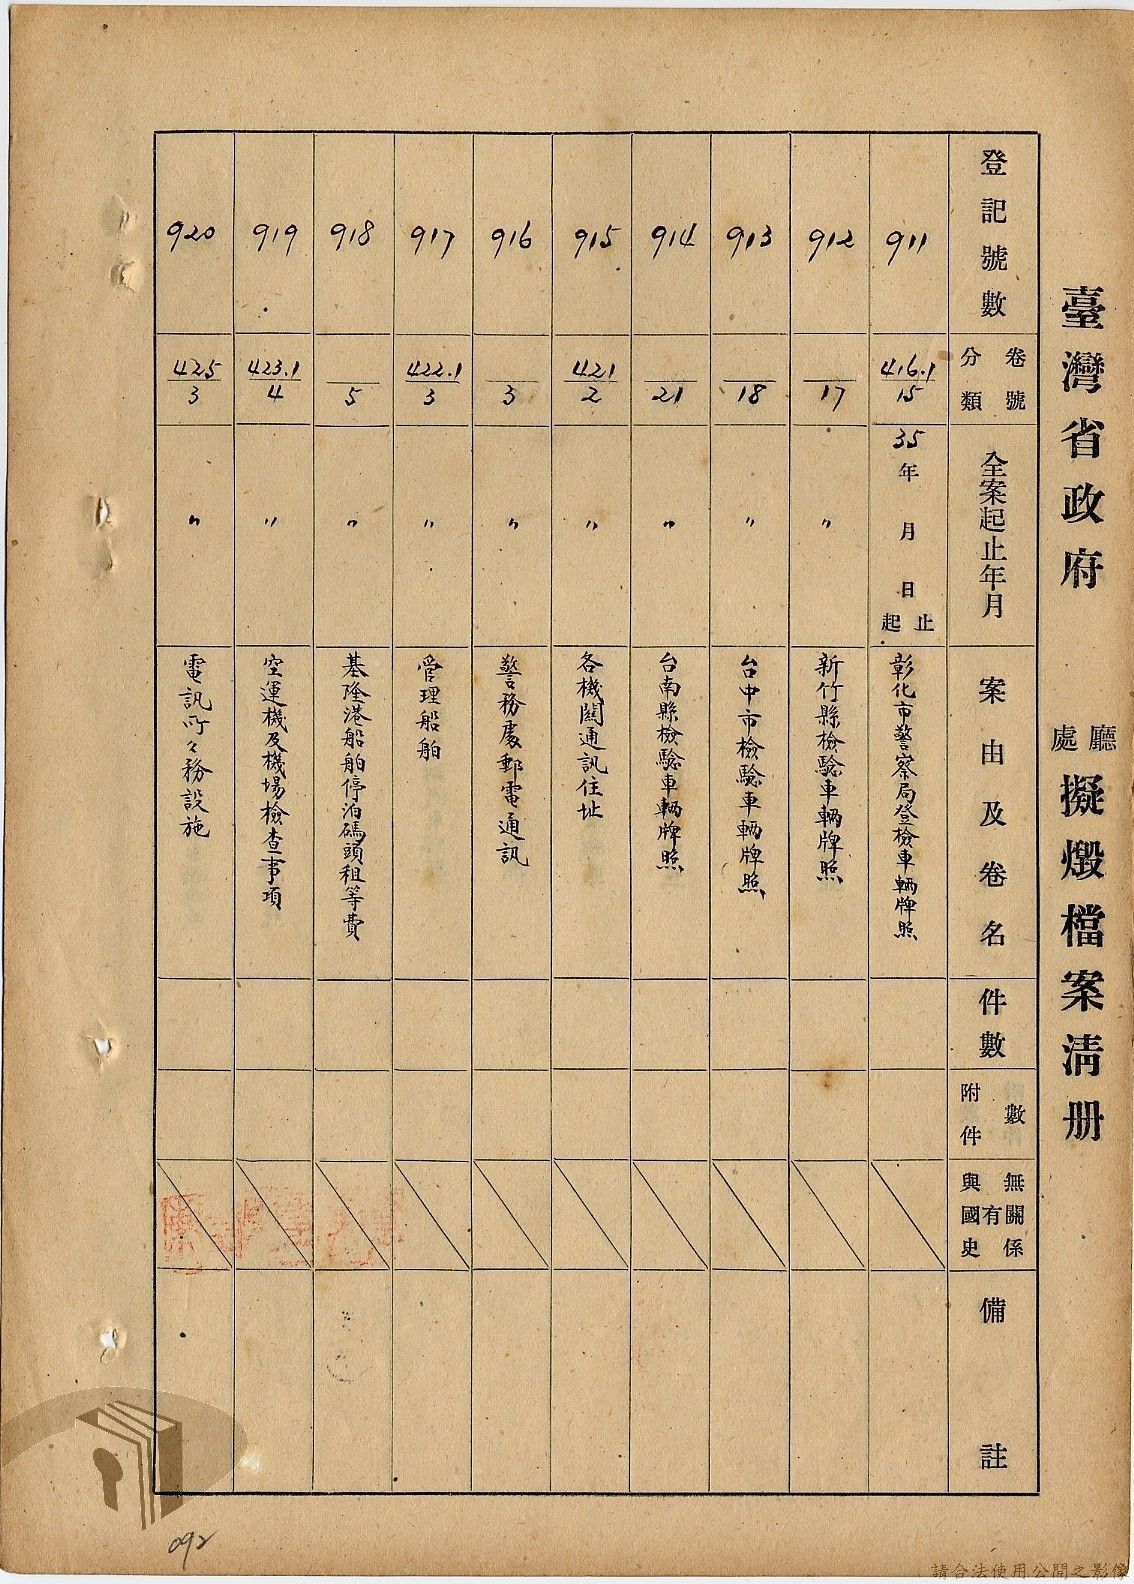 臺灣省政府 廳處 擬燬檔案清册
登記號數
卷號分類
全案起止年月
案由及卷名
件數
附件數
與國史有無關係
備註
911
416.1/15
35年 月 日起止
彰化市警察局登檢車輛牌照
912
/17
〃
新竹縣檢驗車輛牌照
913
/18
〃
台中市檢驗車輛牌照
914
/21
〃
台南縣檢驗車輛牌照
915
421/2
〃
各機關通訊住址
916
/3
〃
警務處郵電通訊
917
422.1/3
〃
管理船舶
918
/5
〃
基隆港船舶停泊碼頭租等費
919
423.1/4
〃
空運機及機場檢查事項
920
425/3
〃
電訊所々務設施
092
請合法使用公開之影像